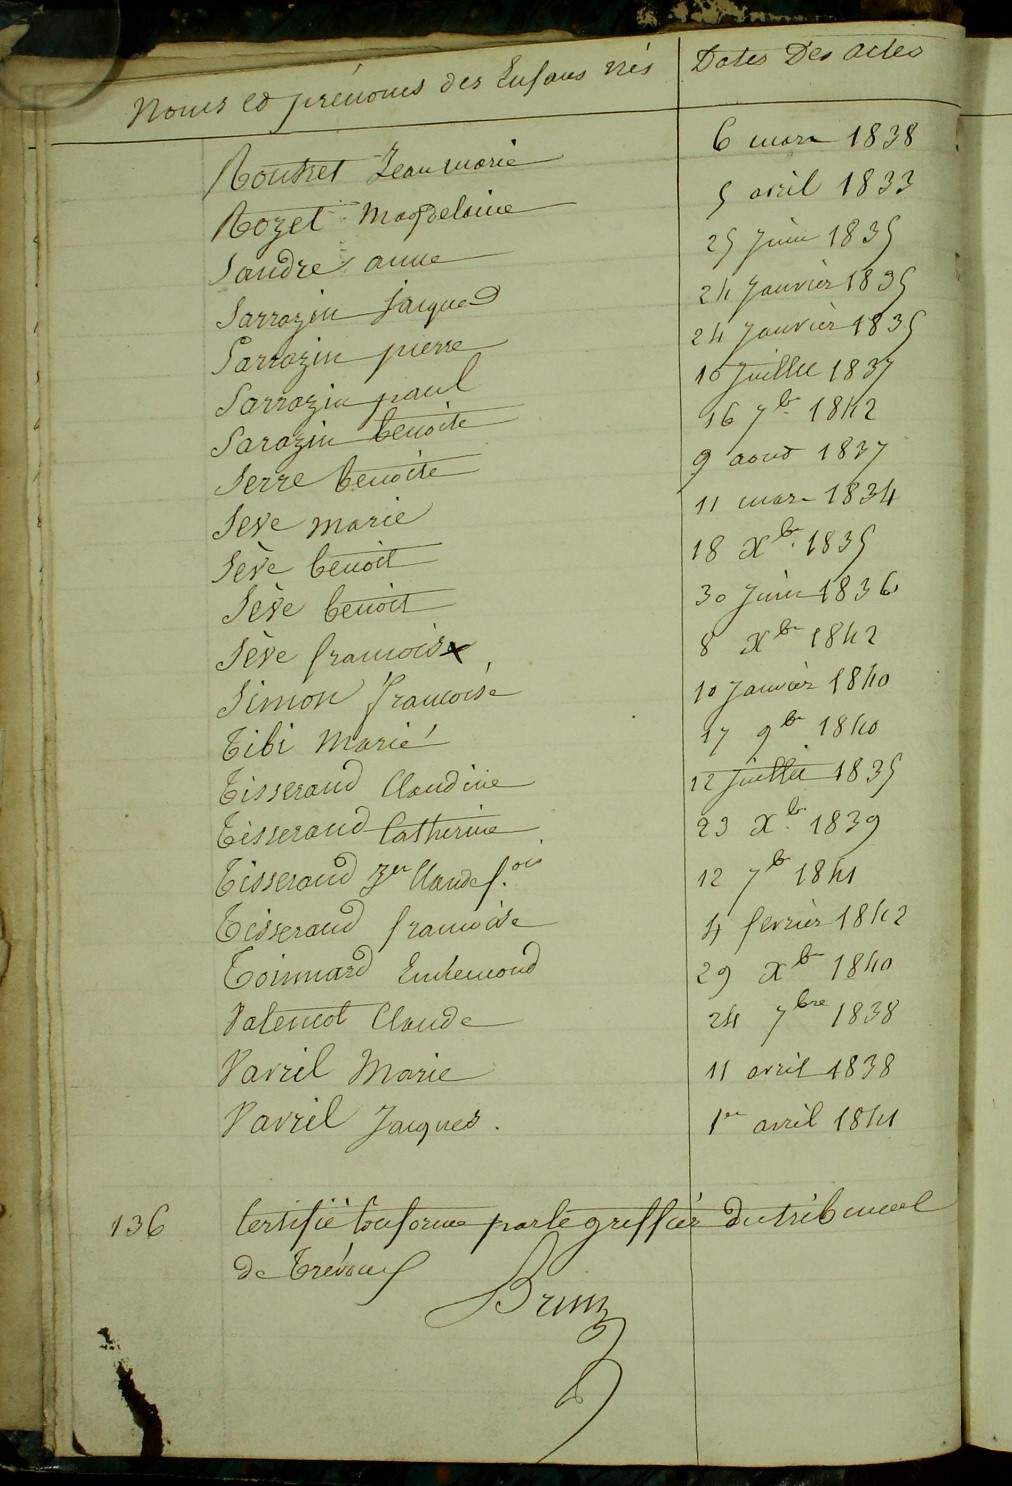 Noms et prénoms des Enfans nés Dates Des actes
Routset Jean marie 6 mars 1838
Rozet Magdelaine 5 avril 1833
Sandre anne 25 Juin 1835
Sarrazin jacques 24 Janvier 1835
Sarrazin pierre 24 Janvier 1835
Sarrazin paul 10 Juillet 1837
Sarazin benoite 16 7b. 1842
Serre benoite 9 aout 1837
Seve marie 11 mars 1834
Sève benoit 18 Xb. 1835
Sève benoit 30 Juin 1836
Sève francoise 8 Xb 1842
Simon francoise 10 Janvier 1840
Tibi Marie 17 9b 1840
Tisserand Claudine 12 Juillet 1835
Tisserand Catherine 23 Xb. 1839
Tisserand Claude f.ois 12 7b 1841
Tisserand francoise 4 fevrier 1842
Toinnard Enhemond 29 Xb 1840
Valencot Claude 24 7bre 1838
Vavril Marie 11 avril 1838
Vavril Jacques. 1er avril 1841
136 Certifié Conforme par le greffier du tribunal
de Trévoux
Brun